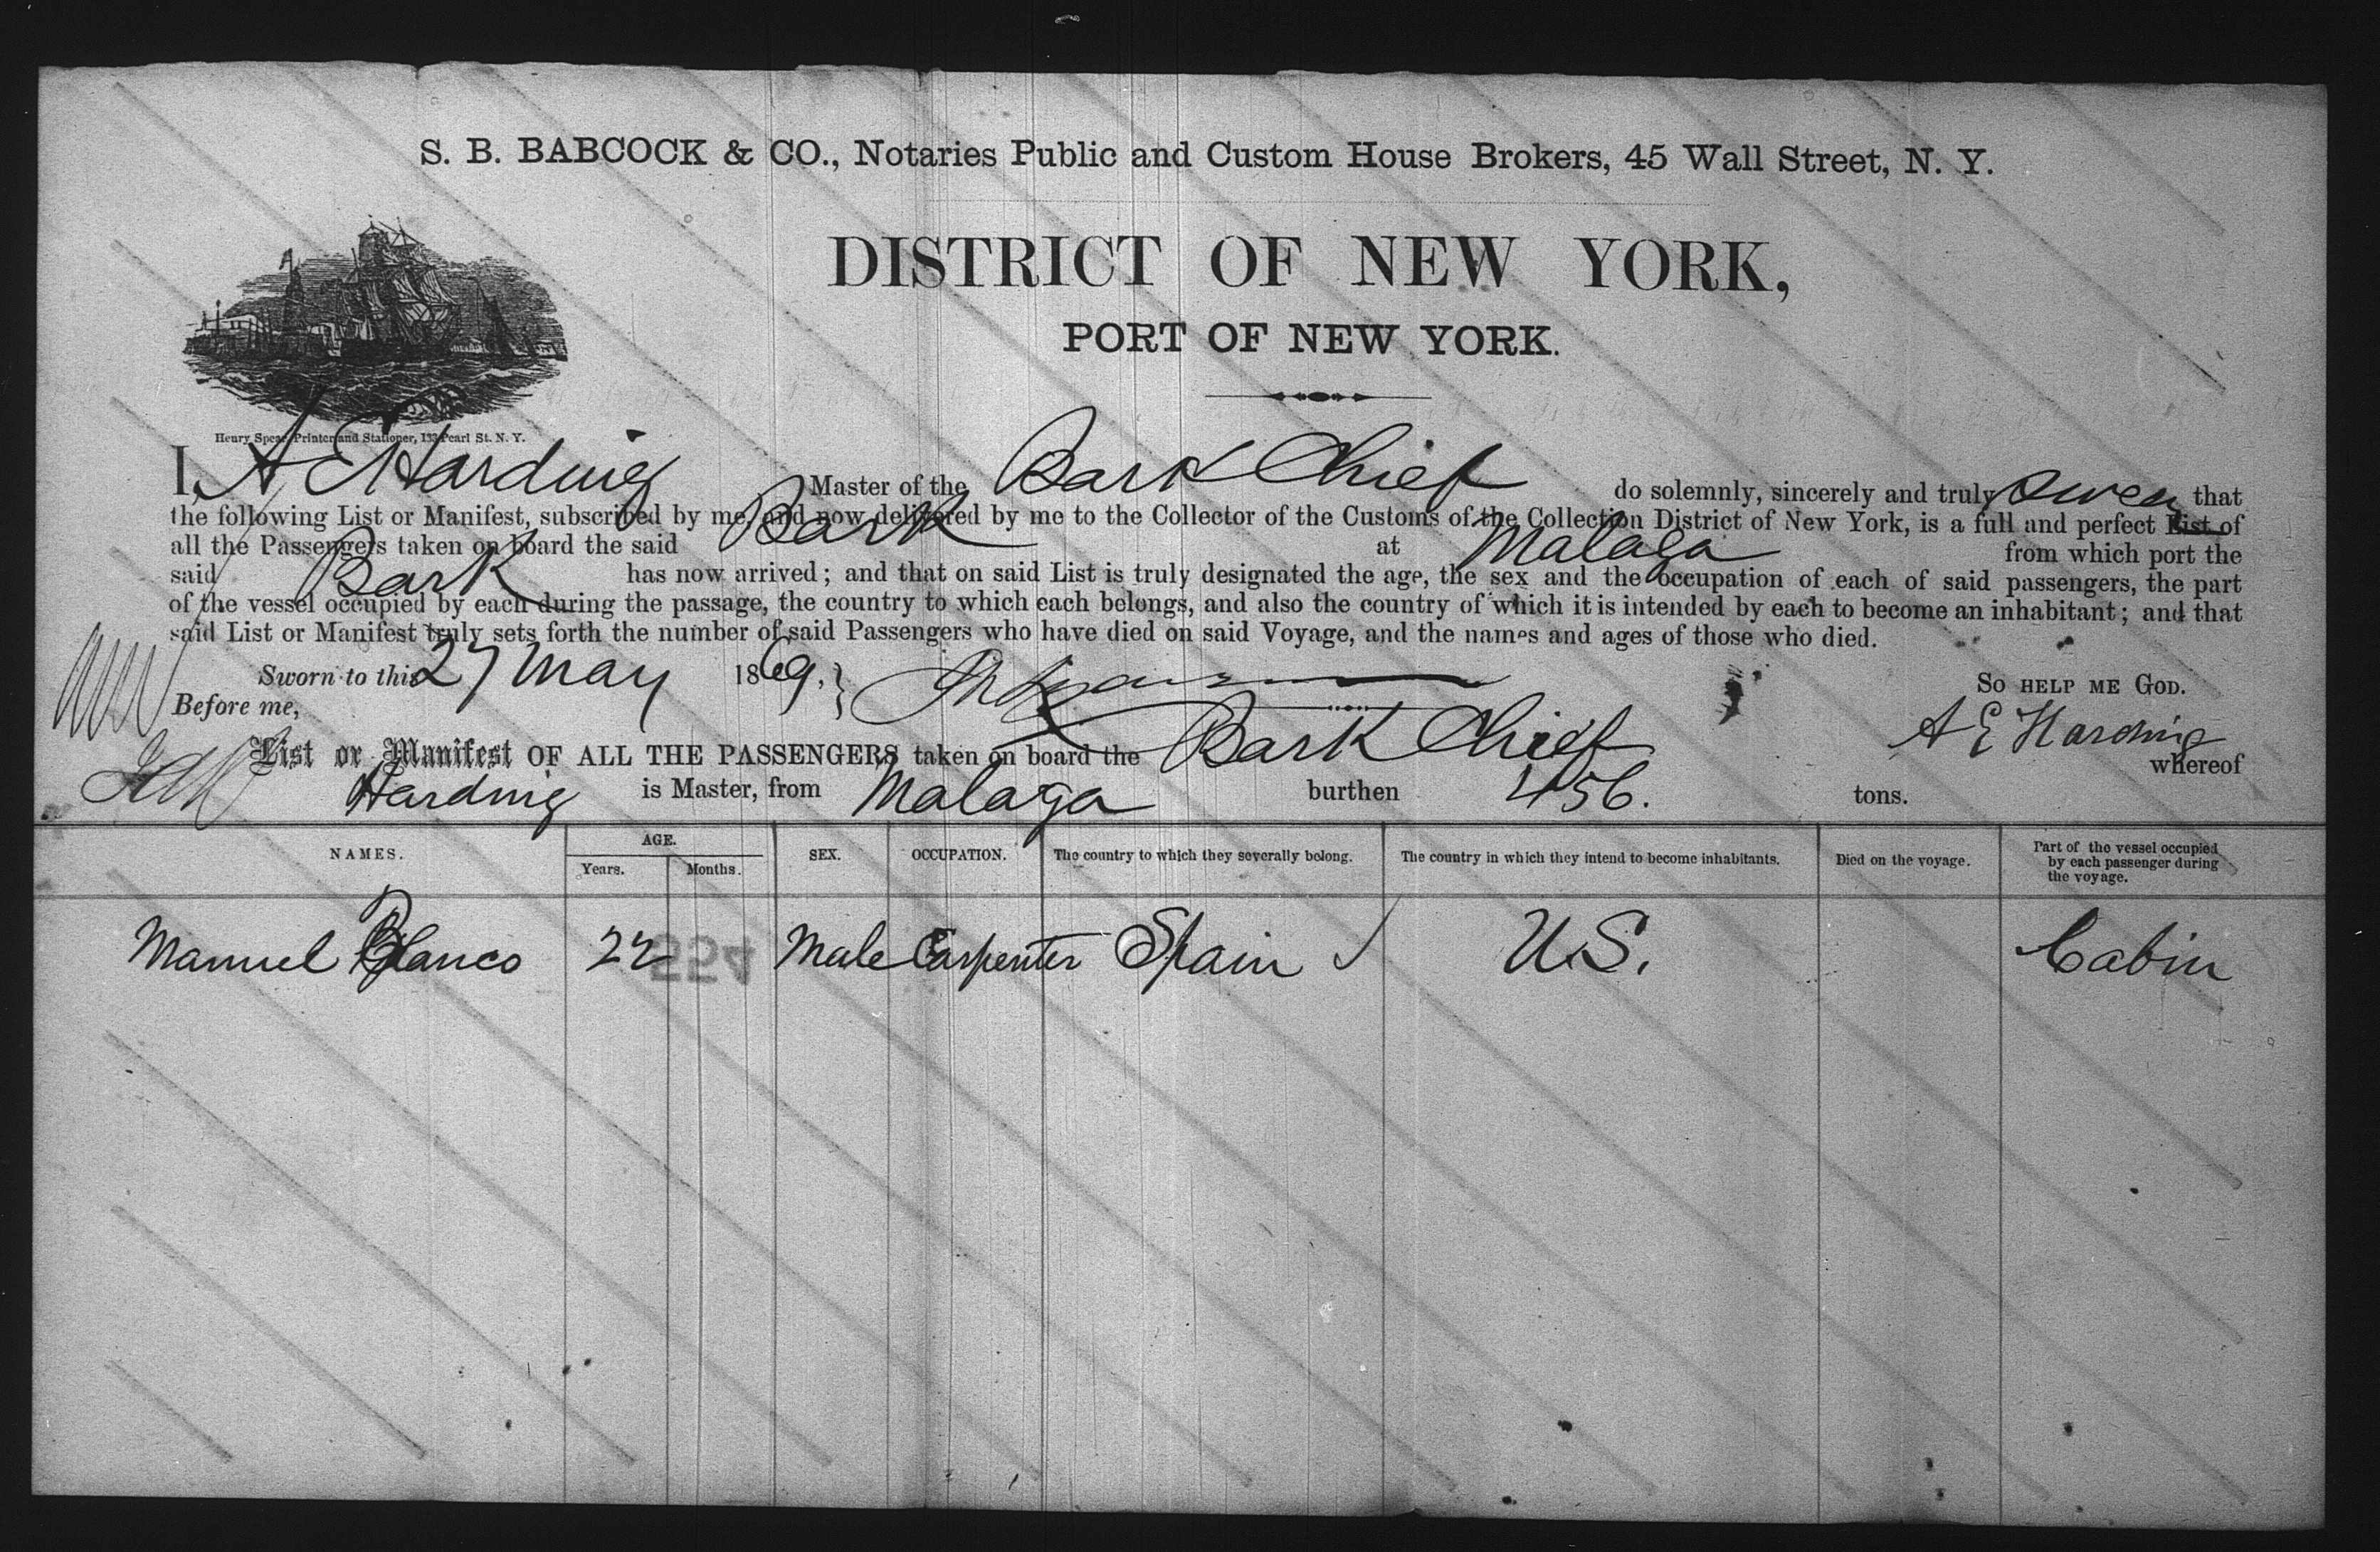 S. B. BABCOCK & CO., Notaries Public and Custom House Brokers, 45 Wall Street, N. Y.
DISTRICT OF NEW YORK,
PORT OF NEW YORK.
Henry Spear, Printer and Stationer, 133 Pearl St. N. Y.
I, A E Harding Master of the Bark Chief do solemnly, sincerely and truly swear that
the following List or Manifest, subscribed by me, and now delivered by me to the Collector of the Customs of the Collection District of New York, is a full and perfect List of
all the Passengers taken on board the said Bark at Malaga from which port the
said Bark has now arrived; and that on said List is truly designated the age, the sex and the occupation of each of said passengers, the part
of the vessel occupied by each during the passage, the country to which each belongs, and also the country of which it is intended by each to become an inhabitant; and that
said List or Manifest truly sets forth the number of said Passengers who have died on said Voyage, and the names and ages of those who died.
Sworn to this 27 May 1869, } So help me God.
Before me, A E Harding
List or Manifest OF ALL THE PASSENGERS taken on board the Bark Chief whereof
Harding is Master, from Malaga burthen 456. tons.
NAMES. AGE. Years. Months. SEX. OCCUPATION. The country to which they severally belong. The country in which they intend to become inhabitants. Died on the voyage. Part of the vessel occupied by each passenger during the voyage.
Manuel Blanco 22 Male Carpenter Spain U.S. Cabin
554